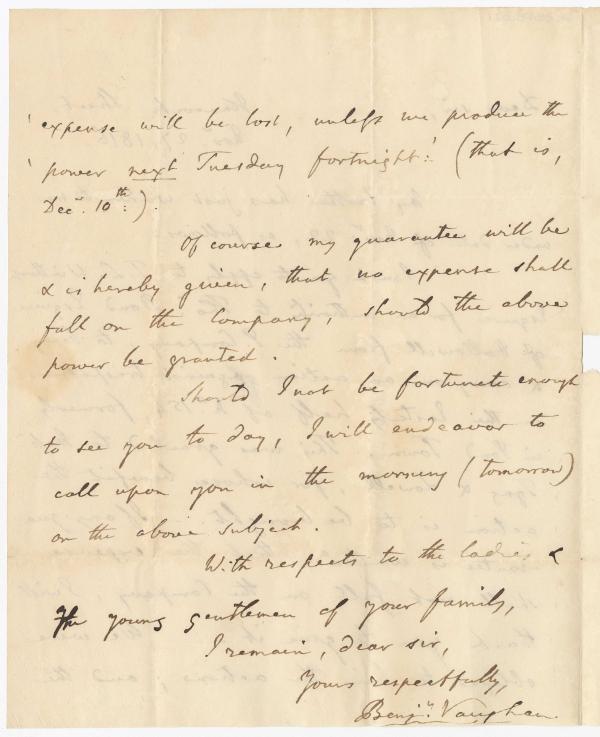 ' expense will be lost, unless we produce the
' power next Tuesday fortnight:' (that is,
Decr. 10th:).
Of course my guarantee will be
& is hereby given, that no expense shall
fall on the Company, should the above
power be granted.
Should I not be fortunate enough
to see you to day, I will endeavor to
call upon you in the morning (tomorrow)
on the above subject.
With respects to the ladies &
the young gentlemen of your family,
I remain, dear sir,
Yours respectfully,
Benjn. Vaughan.